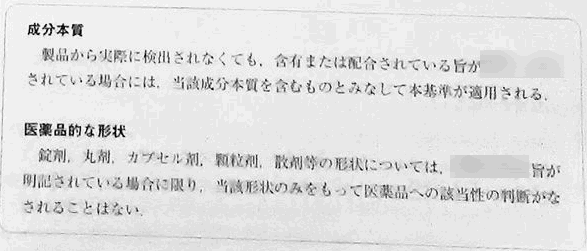 成分本質
製品から実際に検出されなくても，含有または配合されている旨が
されている場合には，当該成分本質を含むものとみなして本基準が適用される．
医薬品的な形状
錠剤，丸剤，カプセル剤，顆粒剤，散剤等の形状については，旨が
明記されている場合に限り，当該形状のみをもって医薬品への該当性の判断がな
されることはない．